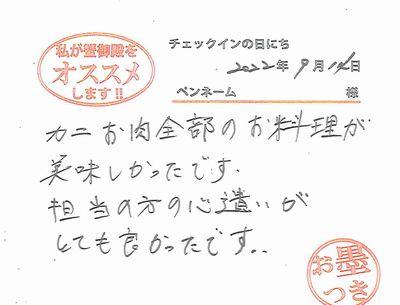 私が蟹御殿を
オススメ
します!!
チェックインの日にち
2022年9月14日
ペンネーム 様
カニお肉全部のお料理が
美味しかったです.
担当の方の心遣いが
とても良かったです..
お墨
つき